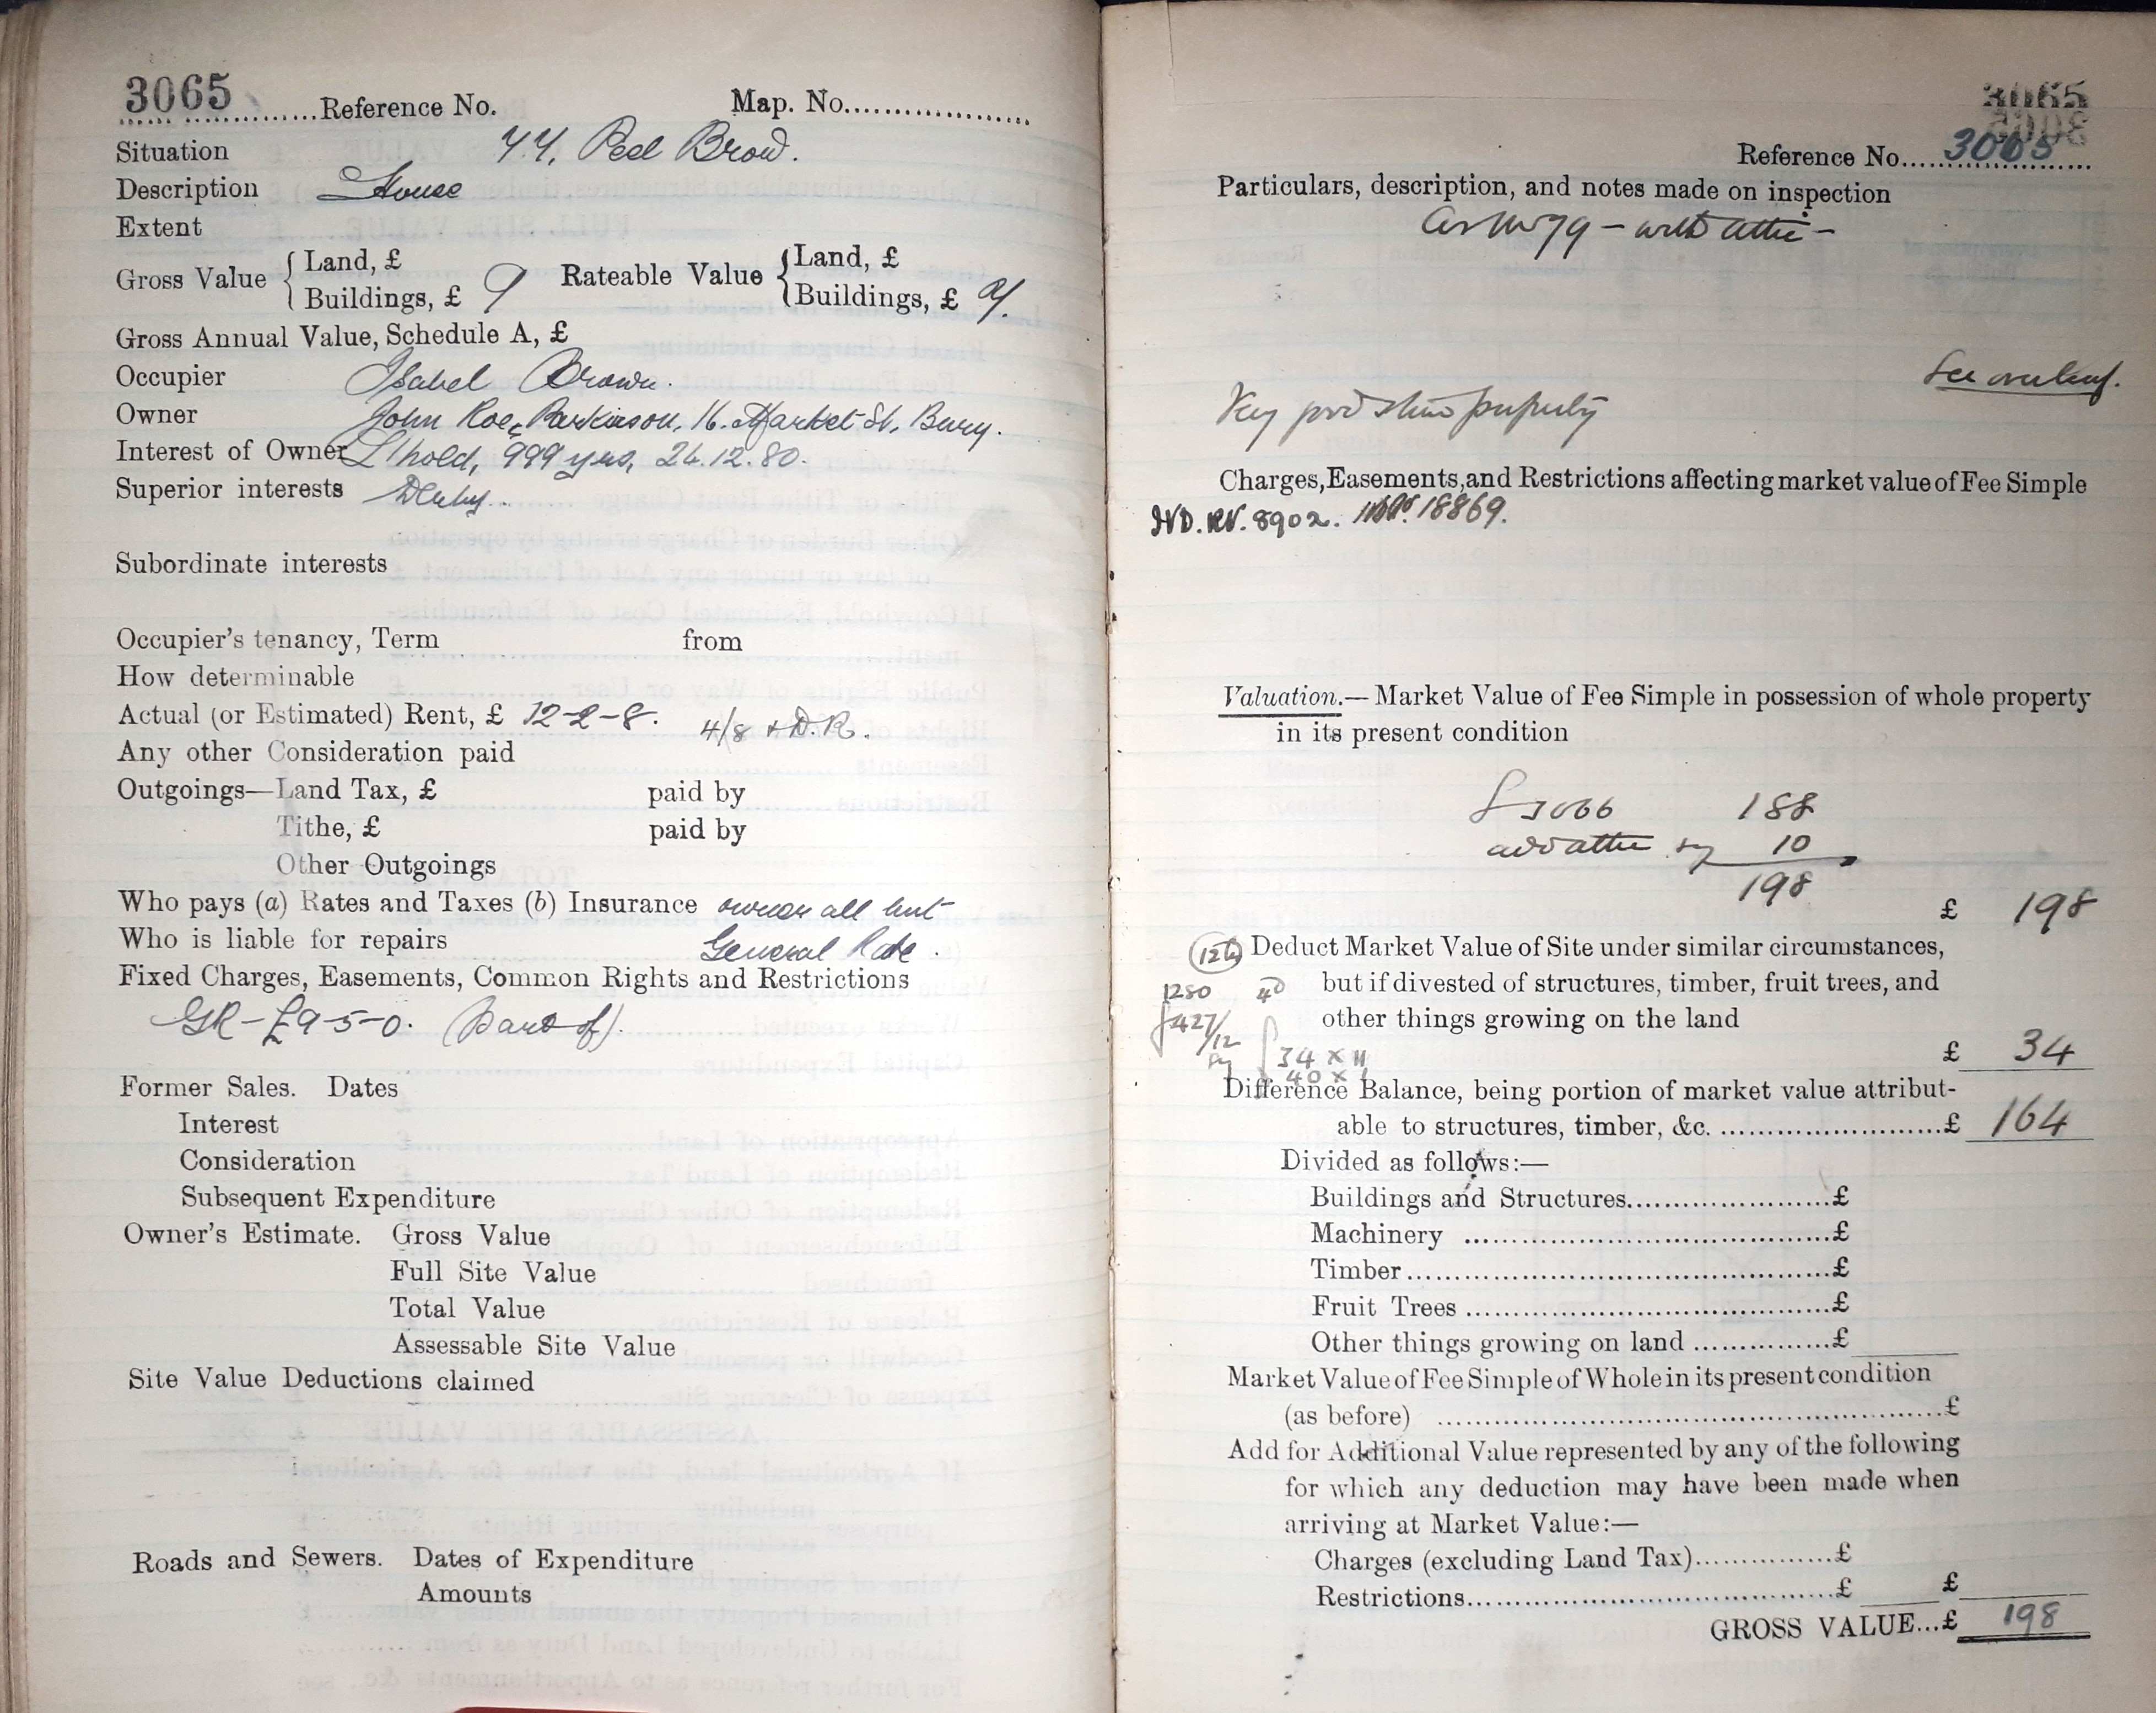 3065 Reference No. Map. No.
Situation 77, Peel Brow.
Description House
Extent
Gross Value { Land, £ Rateable Value { Land, £
Buildings, £ 9 Buildings, £ 9.
Gross Annual Value, Schedule A, £
Occupier Isabel Brown.
Owner John Roe Parkinson, 16. Market St, Bury.
Interest of Owner L'hold, 999 yrs, 26.12.80.
Superior interests Derby.
Subordinate interests
Occupier's tenancy, Term from
How determinable
Actual (or Estimated) Rent, £ 12-2-8. 4/8 + D.R.
Any other Consideration paid
Outgoings—Land Tax, £ paid by
Tithe, £ paid by
Other Outgoings
Who pays (a) Rates and Taxes (b) Insurance owner all but
Who is liable for repairs General Rate.
Fixed Charges, Easements, Common Rights and Restrictions
GR - £9-5-0. (part of).
Former Sales. Dates
Interest
Consideration
Subsequent Expenditure
Owner's Estimate. Gross Value
Full Site Value
Total Value
Assessable Site Value
Site Value Deductions claimed
Roads and Sewers. Dates of Expenditure
Amounts
3065
Reference No. 3065
Particulars, description, and notes made on inspection
As No 79 - with attic -
See overleaf.
Very good stone property
Charges, Easements, and Restrictions affecting market value of Fee Simple
ND. RV. 8902. 18869.
Valuation.—Market Value of Fee Simple in possession of whole property
in its present condition
£ 3066 188
add attic say 10
198
£ 198
Deduct Market Value of Site under similar circumstances,
but if divested of structures, timber, fruit trees, and
1280 4D
other things growing on the land
£427/12
say £ 34 x 11
40 x 1
£ 34
Difference Balance, being portion of market value attribut-
able to structures, timber, &c. £ 164
Divided as follows:—
Buildings and Structures £
Machinery £
Timber £
Fruit Trees £
Other things growing on land £
Market Value of Fee Simple of Whole in its present condition
(as before) £
Add for Additional Value represented by any of the following
for which any deduction may have been made when
arriving at Market Value:—
Charges (excluding Land Tax) £
Restrictions £ £
GROSS VALUE...£ 198